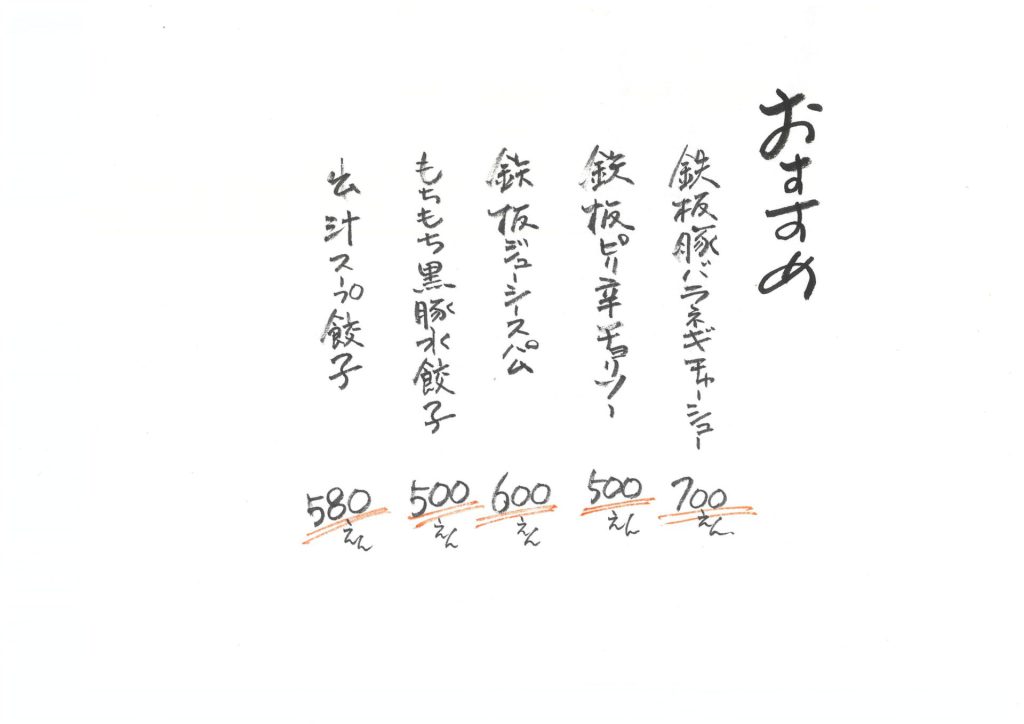 おすすめ
鉄板豚バラネギチャーシュー
700えん
鉄板ピリ辛チョリソー
500えん
鉄板ジューシースパム
600えん
もちもち黒豚水餃子
500えん
出汁スープ餃子
580えん